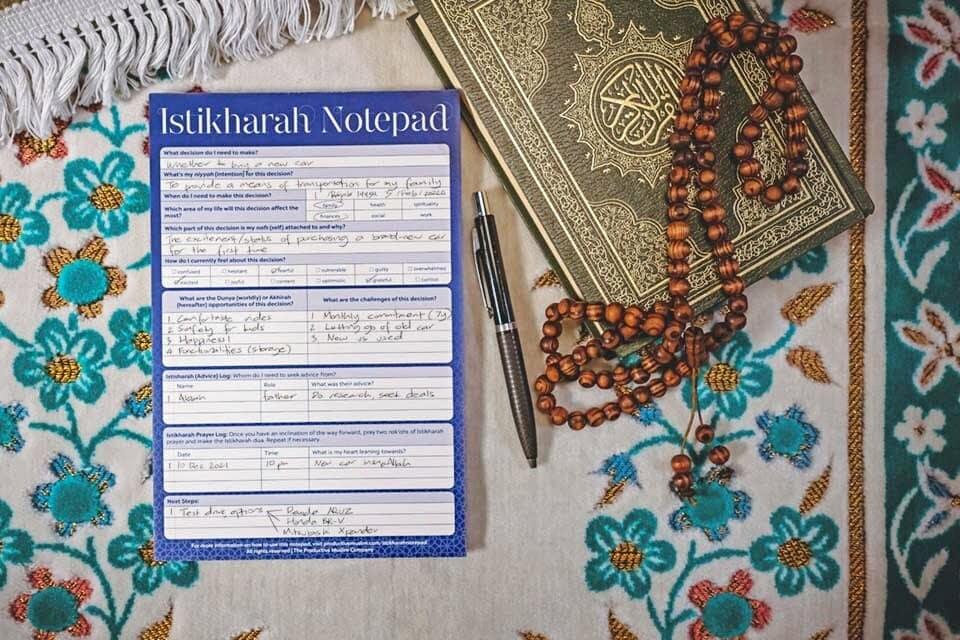 Istikharah Notepad
What decision do I need to make?
Whether to buy a new car
What's my niyyah [intention] for this decision?
To provide a means of transportation for my family
When do I need to make this decision?
Which area of my life will this decision affect the most?
family health spirituality
finances social work
Which part of this decision is my nafs (self) attached to and why?
The excitement/status of purchasing a brand-new car
for the first time
How do I currently feel about this decision?
confused hesitant fearful vulnerable guilty overwhelmed
excited joyful content optimistic grateful curious
What are the Dunya (worldly) or Akhirah (hereafter) opportunities of this decision?
What are the challenges of this decision?
1. Comfortable rides
2. Safety for kids
3. Happiness!
4. Functionalities (storage)
1. Monthly commitment (7y)
2. Letting go of old car
3. New vs used
Istisharah (Advice) Log: Whom do I need to seek advice from?
Name Role What was their advice?
1. Abah father Do research, seek deals
Istikharah Prayer Log: Once you have an inclination of the way forward, pray two rak'ahs of Istikharah
prayer and make the Istikharah dua. Repeat if necessary.
Date Time What is my heart leaning towards?
1 10 Dec 2021 10 pm New car
Next Steps:
1 Test drive options
Perodua ARUZ
Honda BR-V
Mitsubishi Xpander
For more information on how to use this notepad, visit productivemuslim.com/istikharahnotepad
All rights reserved | The Productive Muslim Company